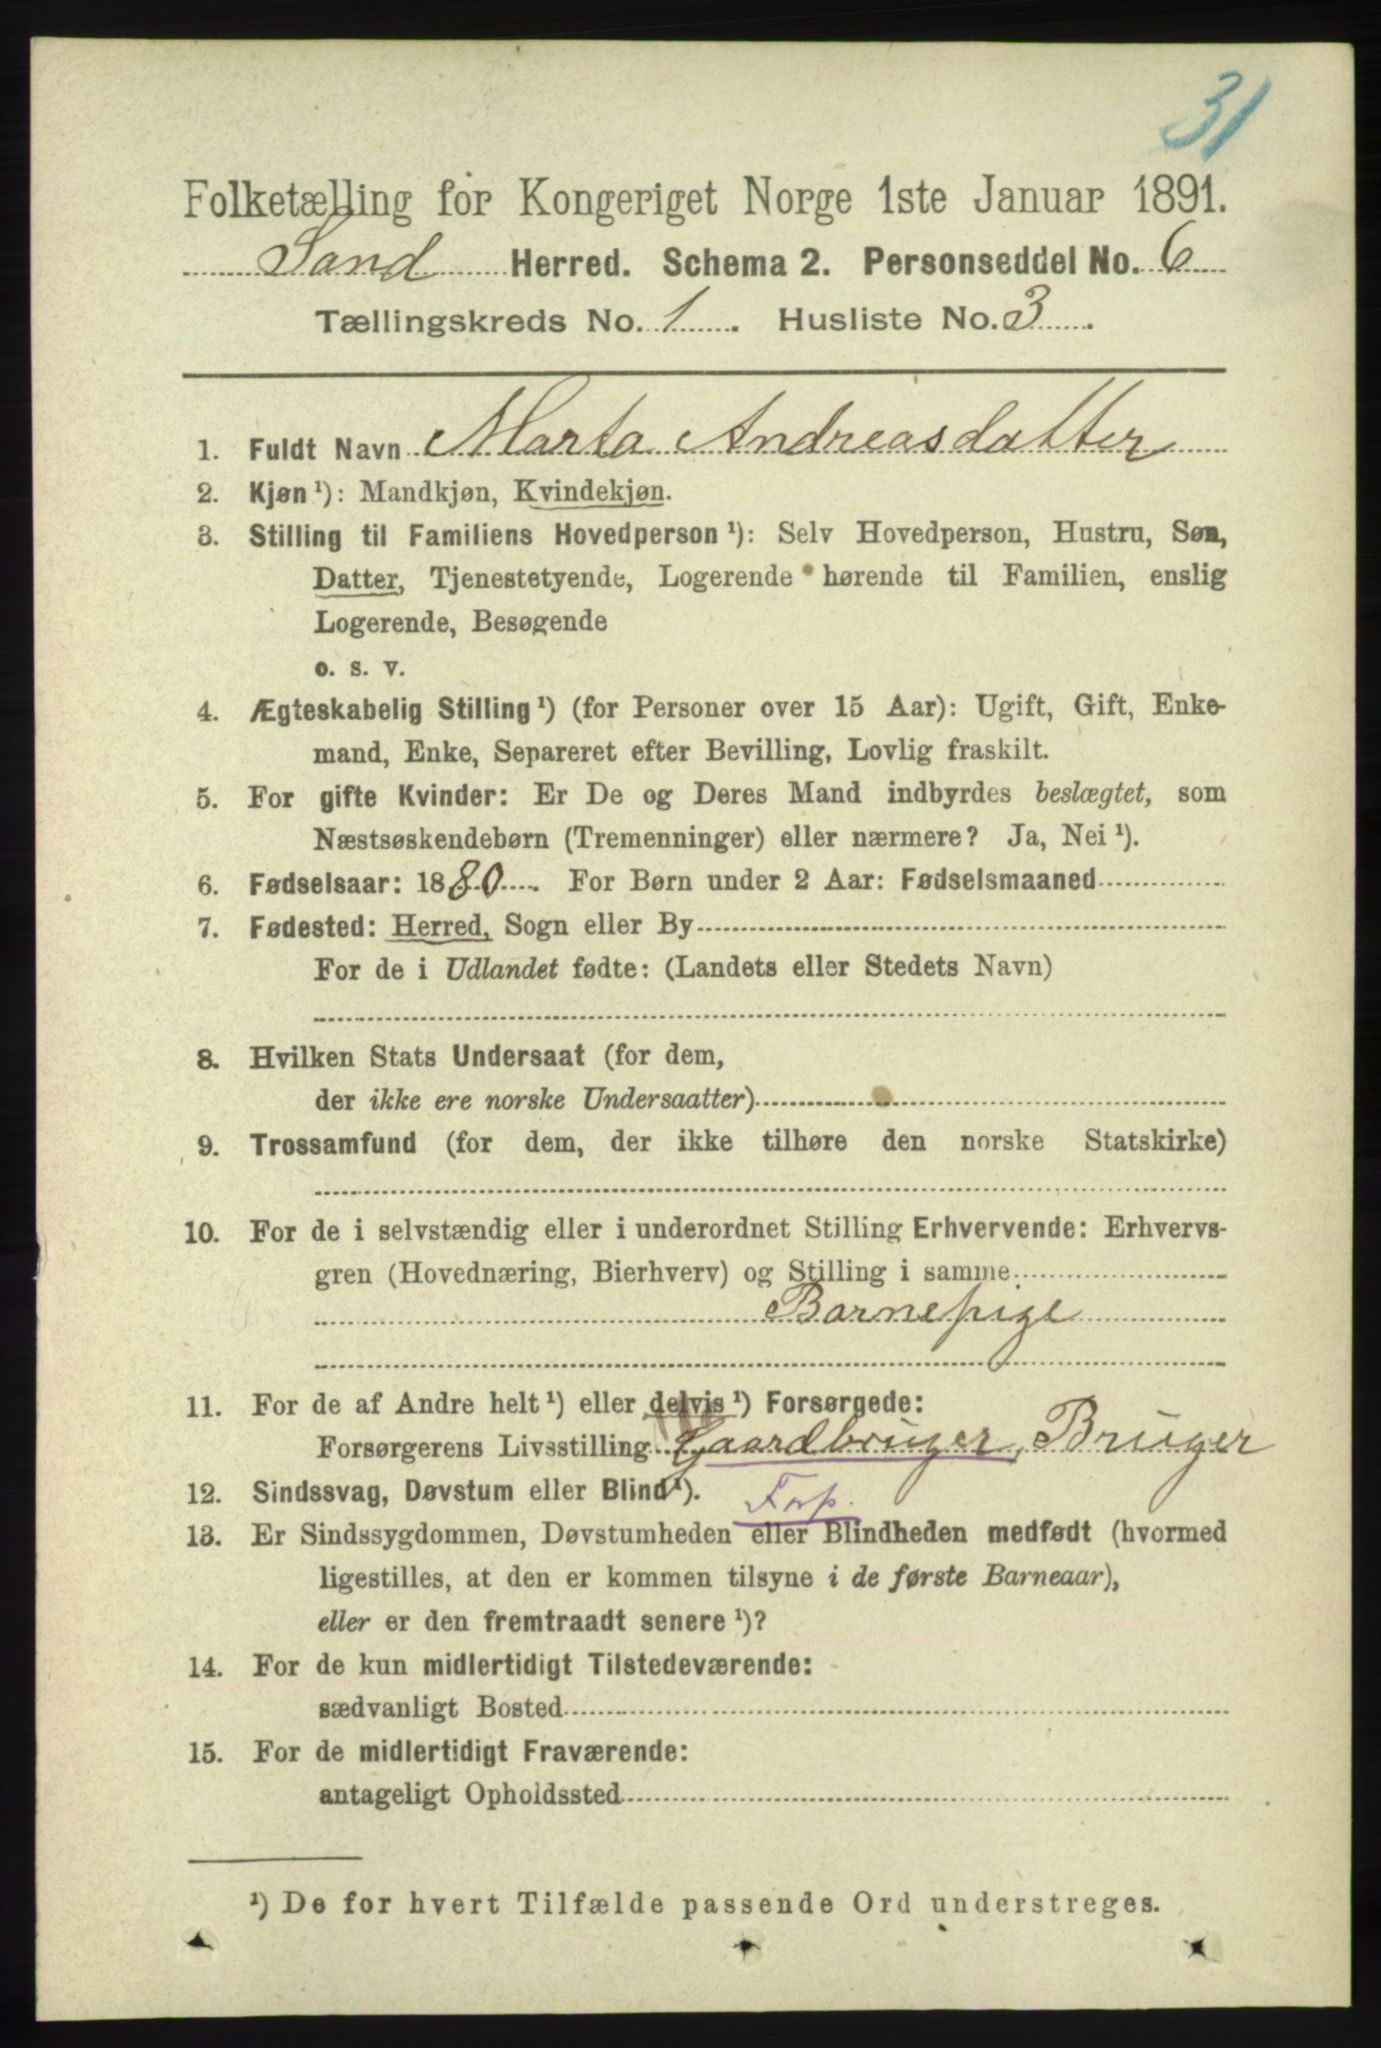 31
Folketælling for Kongeriget Norge 1ste Januar 1891.
Sand Herred. Schema 2. Personseddel No. 6
Tællingskreds No. 1. Husliste No. 3.
1. Fuldt Navn Marta Andreasdatter
2. Kjøn ¹): Mandkjøn, Kvindekjøn.
3. Stilling til Familiens Hovedperson ¹): Selv Hovedperson, Hustru, Søn,
Datter, Tjenestetyende, Logerende hørende til Familien, enslig
Logerende, Besøgende
o. s. v.
4. Ægteskabelig Stilling ¹) (for Personer over 15 Aar): Ugift, Gift, Enke-
mand, Enke, Separeret efter Bevilling, Lovlig fraskilt.
5. For gifte Kvinder: Er De og Deres Mand indbyrdes beslægtet, som
Næstsøskendebørn (Tremenninger) eller nærmere? Ja, Nei ¹).
6. Fødselsaar: 1880. For Børn under 2 Aar: Fødselsmaaned
7. Fødested: Herred, Sogn eller By
For de i Udlandet fødte: (Landets eller Stedets Navn)
8. Hvilken Stats Undersaat (for dem,
der ikke ere norske Undersaatter)
9. Trossamfund (for dem, der ikke tilhøre den norske Statskirke)
10. For de i selvstændig eller i underordnet Stilling Erhvervende: Erhvervs-
gren (Hovednæring, Bierhverv) og Stilling i samme
Barnepige
11. For de af Andre helt ¹) eller delvis ¹) Forsørgede:
Forsørgerens Livsstilling Gaardbruger, Bruger
12. Sindssvag, Døvstum eller Blind ¹).
Forp.
13. Er Sindssygdommen, Døvstumheden eller Blindheden medfødt (hvormed
ligestilles, at den er kommen tilsyne i de første Barneaar),
eller er den fremtraadt senere ¹)?
14. For de kun midlertidigt Tilstedeværende:
sædvanligt Bosted
15. For de midlertidigt Fraværende:
antageligt Opholdssted
¹) De for hvert Tilfælde passende Ord understreges.